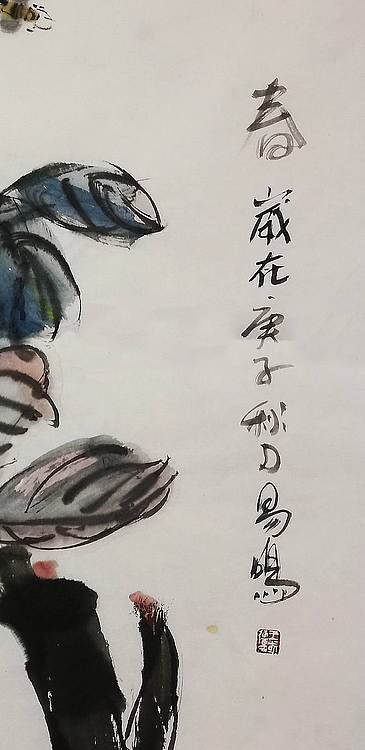 春歲在庚子秋月易鳴